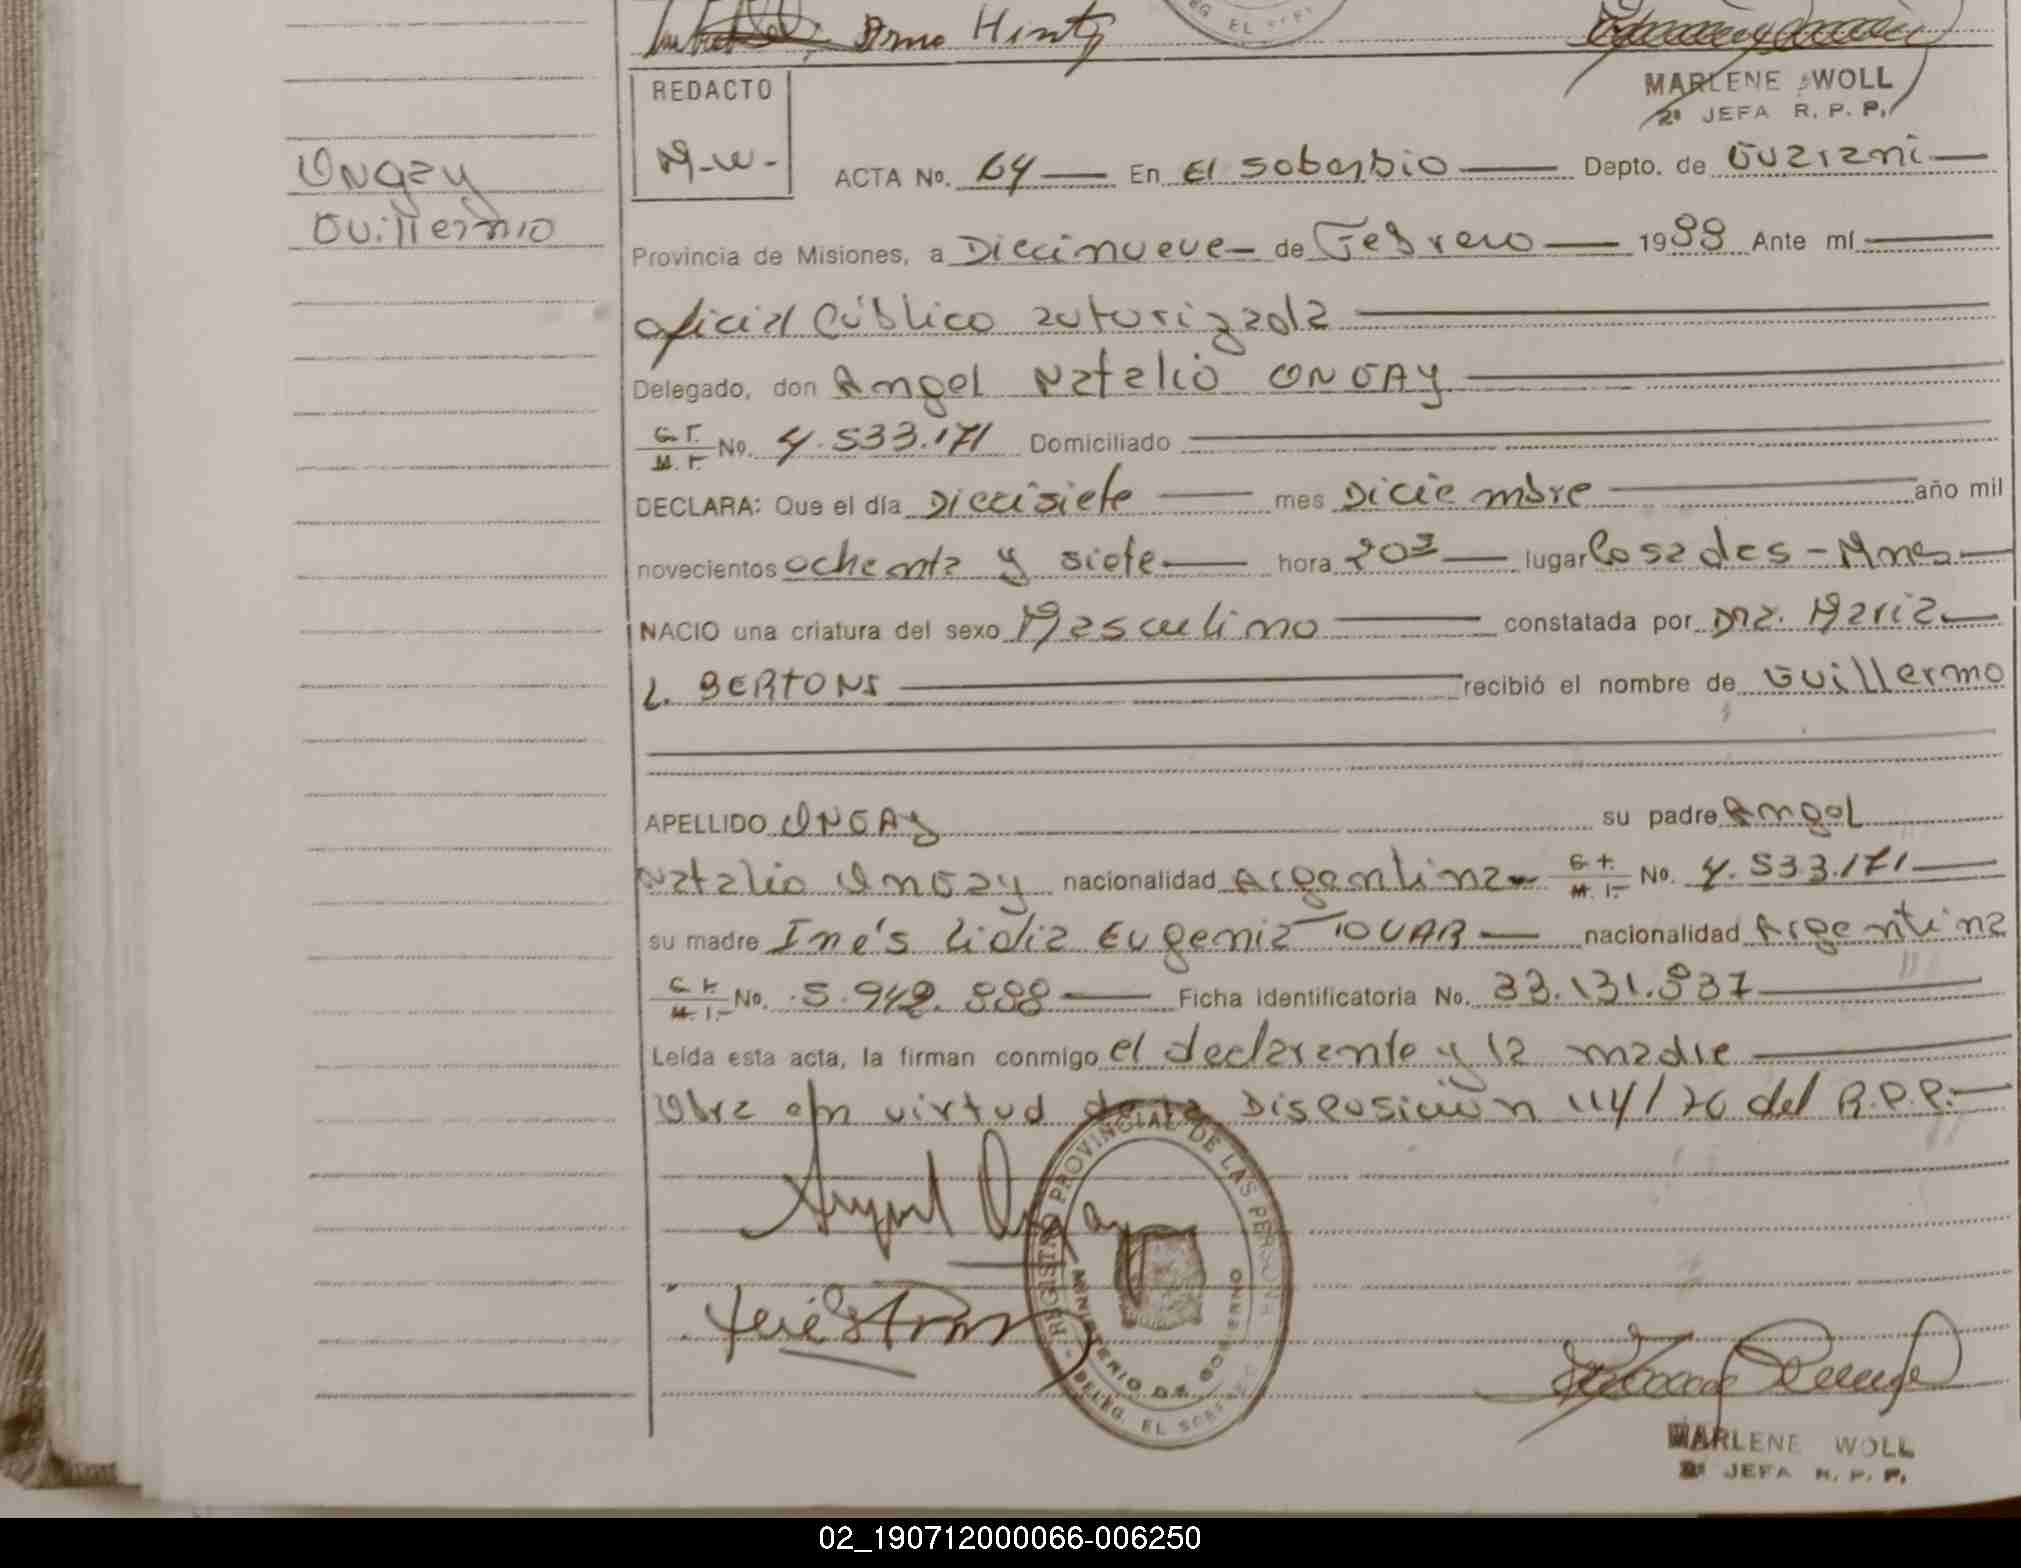 Arno Hintz
MARLENE WOLL
2ª JEFA R. P. P.
REDACTO
M-W-
Ongay
Guillermo
ACTA No. 64 En El Soberbio Depto. de Guarani
Provincia de Misiones, a Diecinueve de Febrero 1988 Ante mí
oficial Público autorizada
Delegado, don Angel Natalio ONGAY
No. 4.533.171 Domiciliado
DECLARA: Que el día Diecisiete mes Diciembre año mil
novecientos ochenta y siete hora 20 lugar Posadas - Mnes
NACIO una criatura del sexo Masculino constatada por Dra. Maria
L. BERTONI recibió el nombre de Guillermo
APELLIDO ONGAY su padre Angel
Natalio Ongay nacionalidad Argentina M. I. No. 4.533.171
su madre Inés Lidia Eugenia TOVAR nacionalidad Argentina
M. I. No. 5.949.888 Ficha identificatoria No. 33.131.937
Leída esta acta, la firman conmigo el declarante y la madre
Obra en virtud de la Disposición 114/76 del R.P.P.
Angel Ongay
REGISTRO PROVINCIAL DE LAS PERSONAS
MINISTERIO DE GOBIERNO
DELEG. EL SOBERBIO
MARLENE WOLL
2ª JEFA R. P. P.
02_190712000066-006250